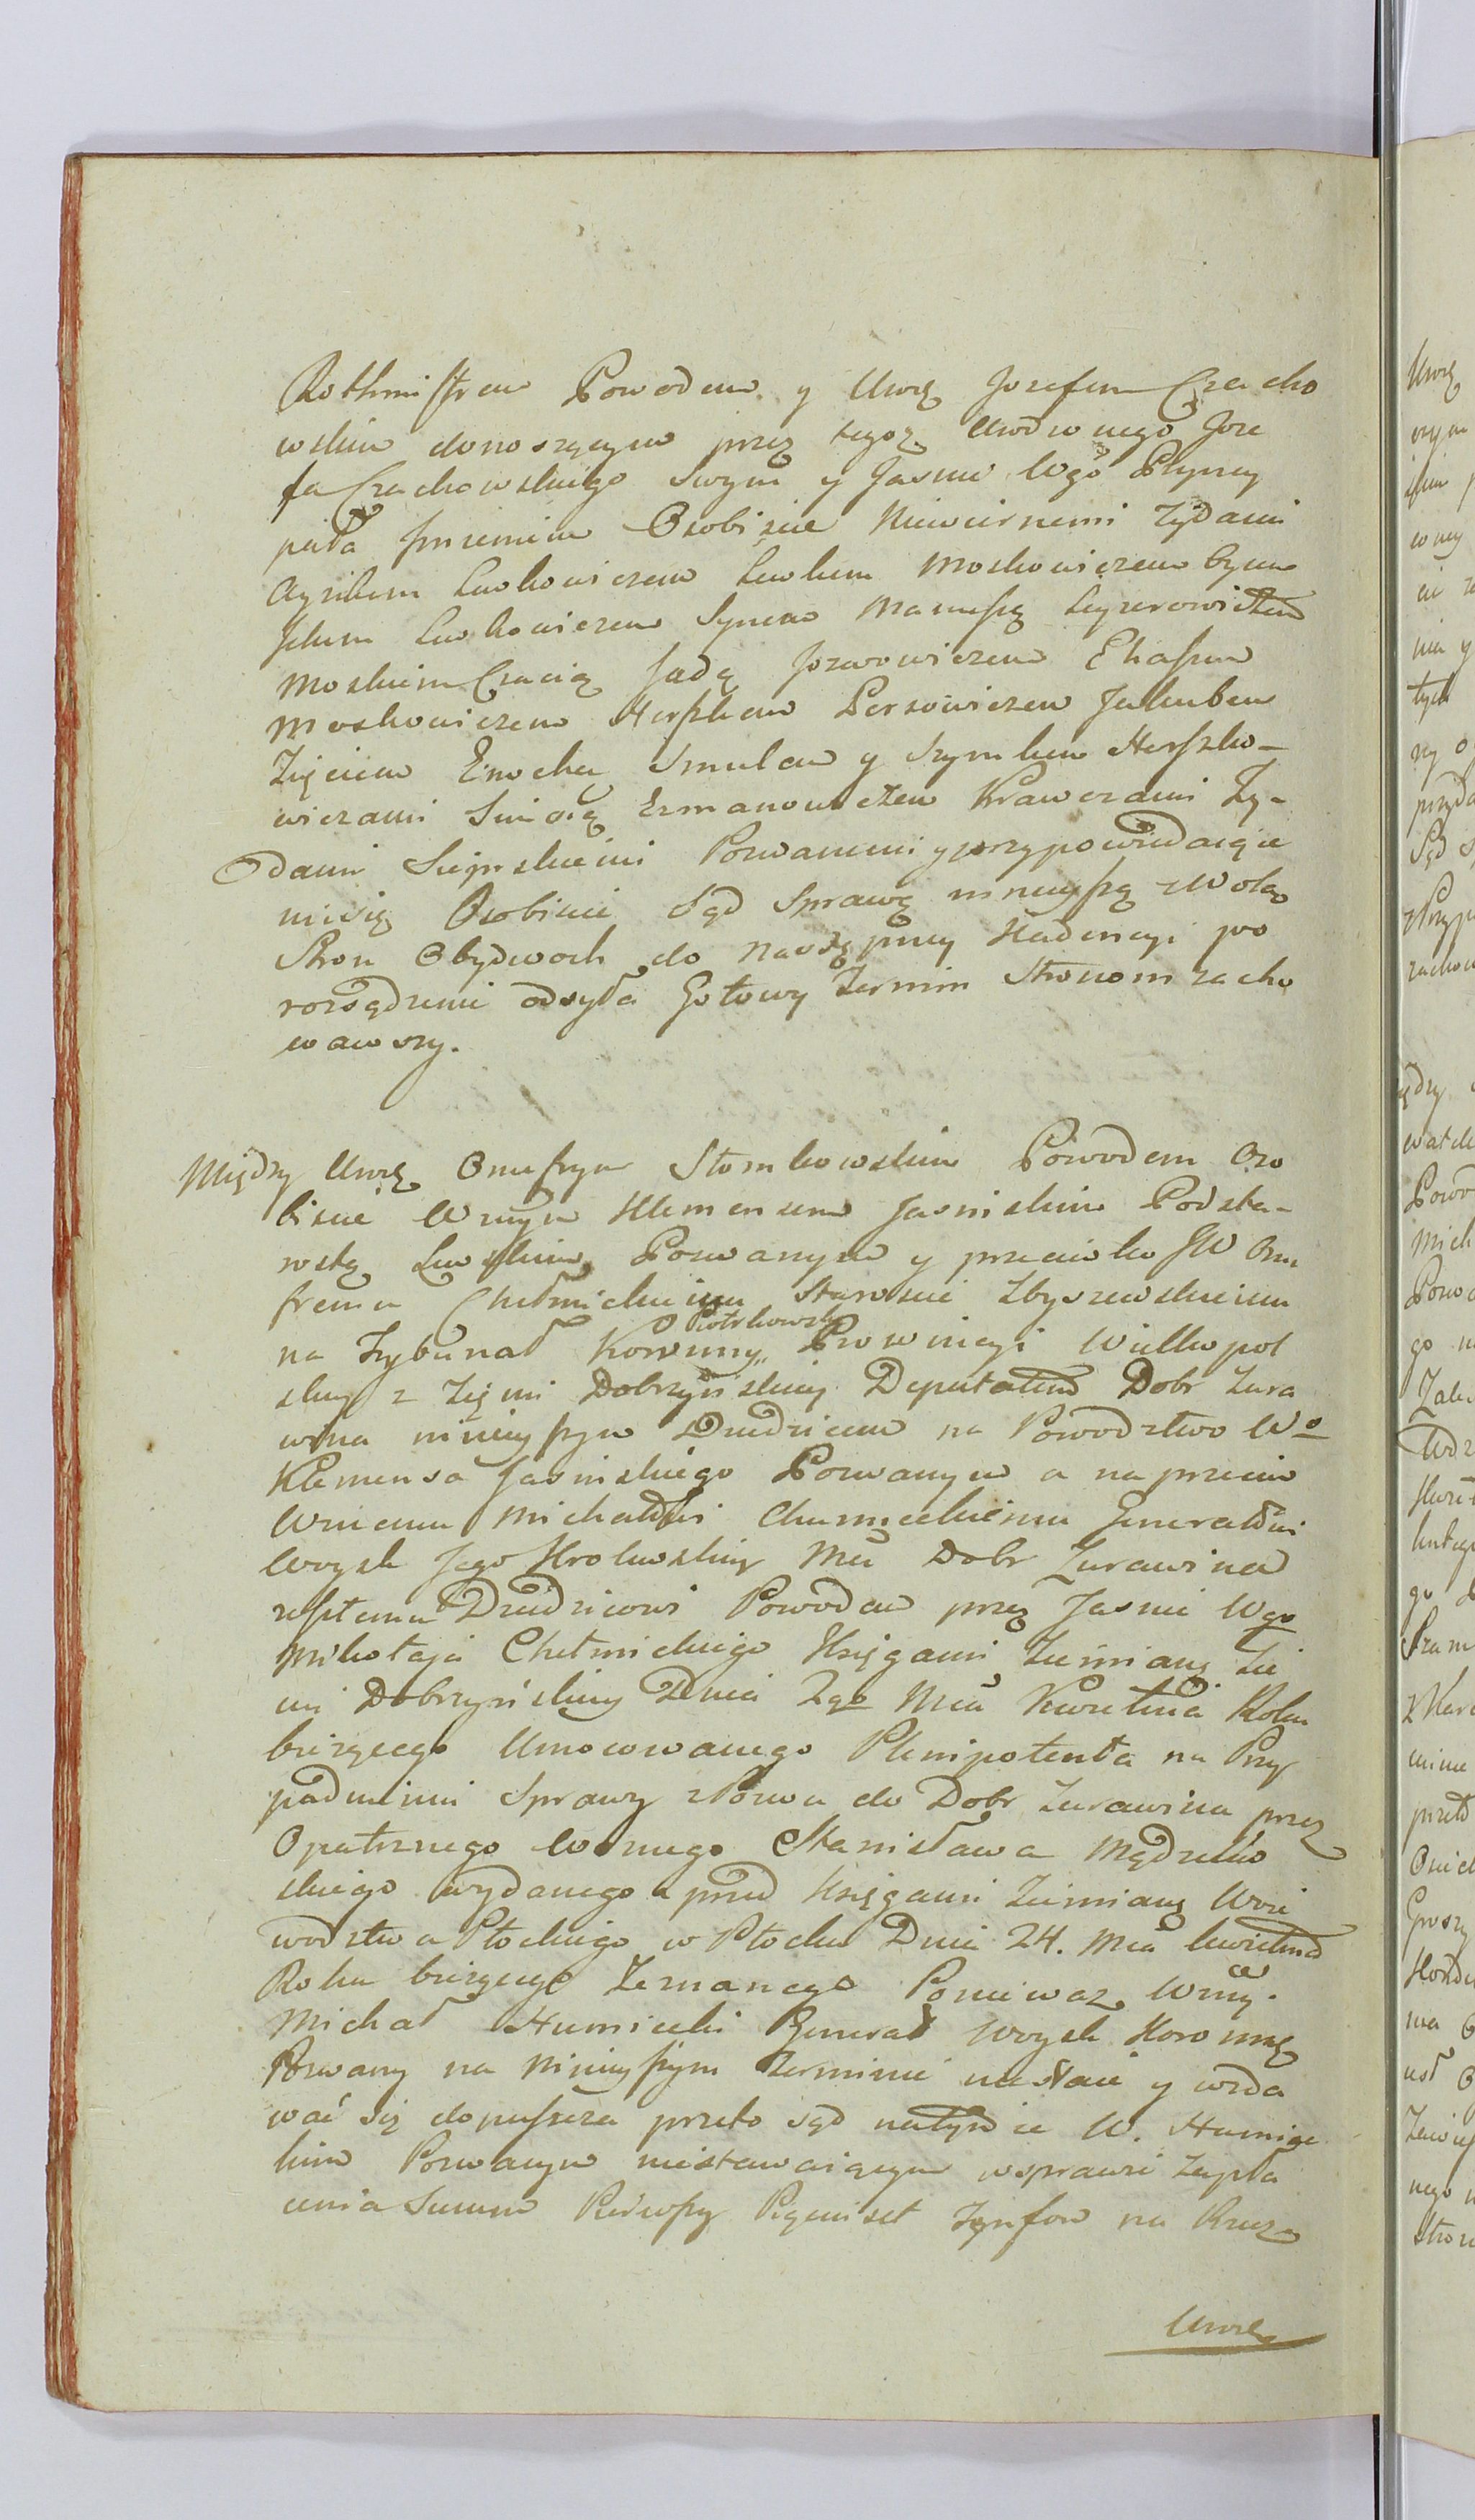 Rothmistrem Powodem y Urodz Jozefem Czacho
wskim donoszącym przez tegoz Urodzonego Joze
fa Czachowskiego Swym y Jasnie Wgo
Imieniem Osobiscie Niewiernemi Zydami
Lewkowiczem Lewkiem Moskowiczem
Lewkowiczem Synem Manaszą Leyzerowiczem
Moskiem Jozwowiczem
Moskowiczem Herszkiem Berkowiczem Jakubem
Zięciem Enochą Smulem y Szymkiem Herszko-
wiczami Ermanowiczem Krawczami Zy-
dami Sierpskiemi Pozwanemi y przypowiedaiące
misię Osobiscie Sąd Sprawę ninieyszą z Wolą
Stron Obydwoch do Następney Kadencyi po
rozsądzenie odsyła Gotowy Termin Stronom zacho
wawszy.
Między Urodz Onufrym Słomkowskim Powodem Oso
biscie Wnym Klemensem Jasinskim Podsta-
roscą Pozwanym y przeciwko JW Onu
fremu Chełmickiemu Staroscie Zbyszewskiemu
na Trybunał Koronny Piotrkowski Prowincyi Wielkopol
skiey z Ziemi Dobrzyńskiey Deputatem Dobr Zura
wina ninieyszym Dziedzicem na Powodztwo Wo
Klemensa Jasinskiego Pozwanym a naprzeciw
Wnemu Michałowi Chumięckiemu Generałowi
Woysk Jego Krolewskiey Mci Dobr Zurawina
resztemu Dziedzicowi Powodem przez Jasnie Wgo
Mikołaja Chełmickiego Księgami Ziemiany Zie
mi Dobrzyńskiey Dnia 2go Mca Kwietnia Roku
bieżącego Umocowanego Plenipotenta na Przy
padnieniu Sprawy z Pozwu do Dobr Zurawina przez
Opatrznego Woznego Stanisława Mądrzeko
skiego wydanego a przed Księgami Ziemiany Woie
wodztwa Płockiego w Płocku Dnia 24. Mca kwietnia
Roku bieżącego Zeznanego Poniewaz Wny.
Michał Humiecki Generał Woysk Koronny
Pozwany na Ninieyszym Terminie niestaie y wzda
wać się dopuszcza przeto sąd natymze W. Humiec
kim Pozwanym niestawaiącym wsprawie Zapła
cenia Summ Pierwszy Pięciuset Tynfow na Rzecz
Urodz